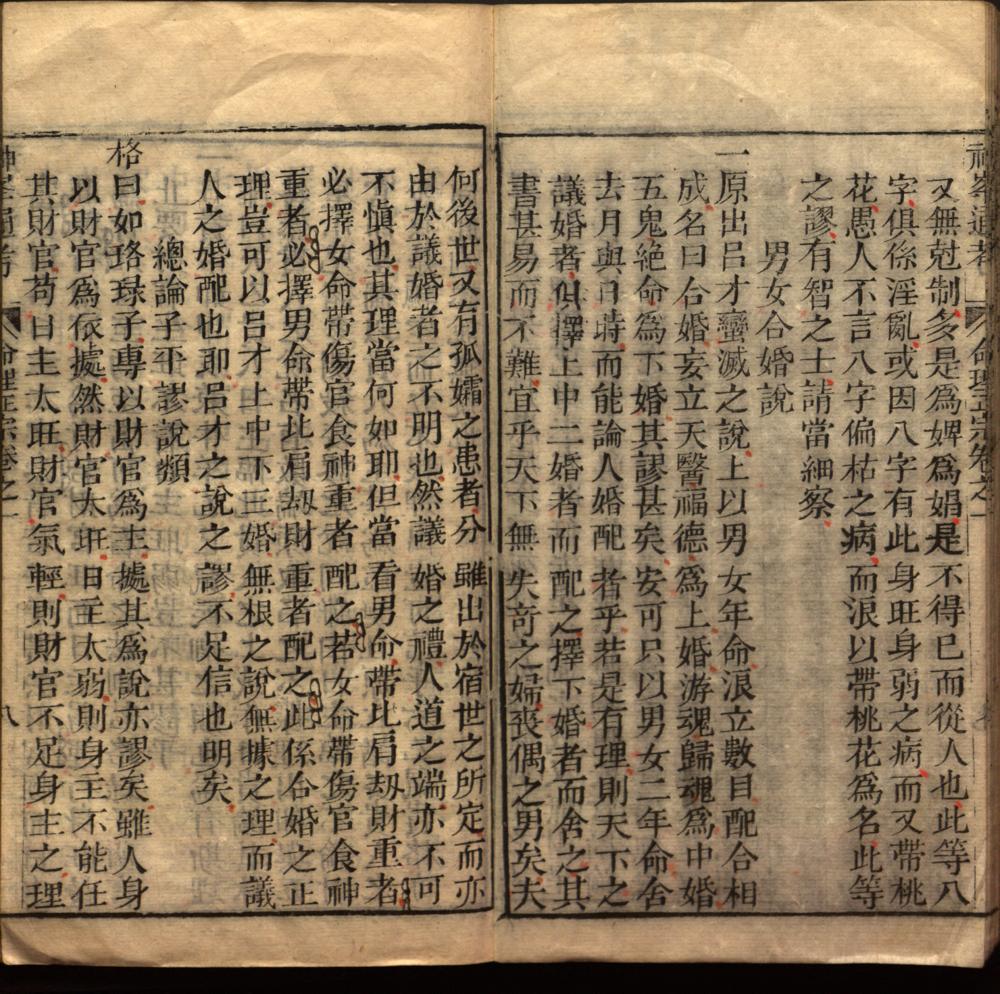 神峯通考 命理正宗卷之一
又無尅制多是爲婢爲娼是不得已而從人也此等八
字俱係淫亂或因八字有此身旺身弱之病而又帶桃
花愚人不言八字偏枯之病而浪以帶桃花爲名此等
之謬有智之士請當細察
男女合婚說
一原出呂才蠻滅之說上以男女年命浪立數目配合相
成名曰合婚妄立天醫福德爲上婚游魂歸魂爲中婚
五鬼絕命爲下婚其謬甚矣安可只以男女二年命舍
去月與日時而能論人婚配者乎若是有理則天下之
議婚者但擇上中二婚者而配之擇下婚者而舍之其
書甚易而不難宜乎天下無失奇之婦喪偶之男矣夫
何後世又有孤孀之患者分雖出於宿世之所定而亦
由於議婚者之不明也然議婚之禮人道之端亦不可
不愼也其理當何如耶但當看男命帶比肩刼財重者
必擇女命帶傷官食神重者配之若女命帶傷官食神
重者必擇男命帶比肩刼財重者配之此係合婚之正
理豈可以呂才上中下三婚無根之說無據之理而議
人之婚配也耶呂才之說之謬不足信也明矣
總論子平謬說類
格曰如珞琭子專以財官爲主據其爲說亦謬矣雖人身
以財官爲依據然財官太旺日主太弱則身主不能任
其財官苟日主太旺財官氣輕則財官不足身主之理
神峯通考 命理正宗卷之一 八